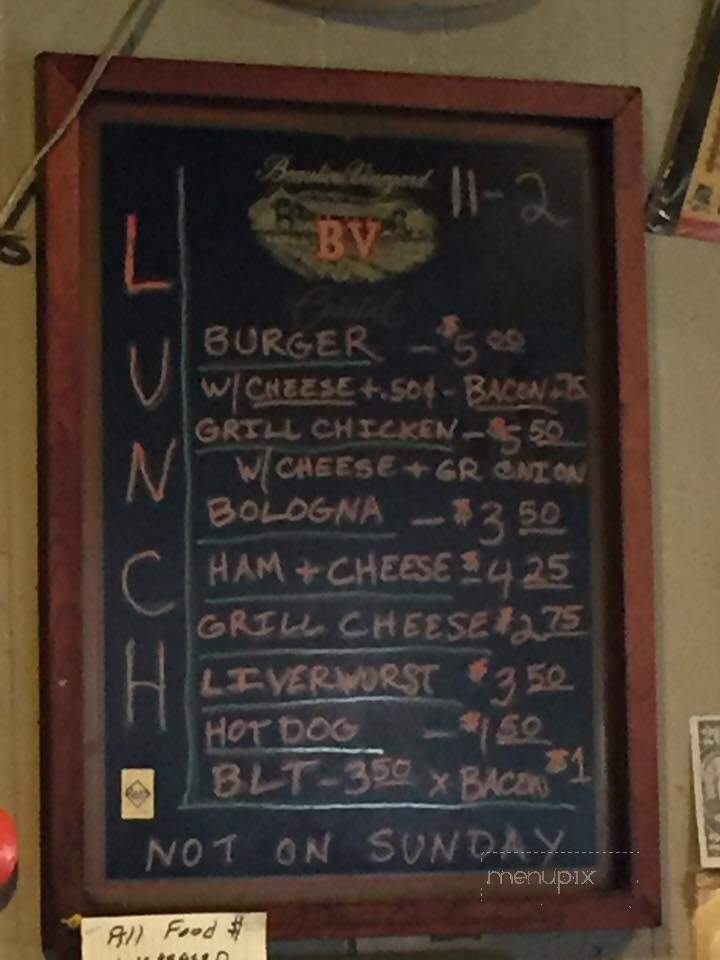 Beaulieu Vineyard
BV
Coastal
11-2
LUNCH
BURGER - $5.00
W/CHEESE +.50¢ - BACON .75
GRILL CHICKEN - $5.50
W/CHEESE + GR ONION
BOLOGNA - $3.50
HAM + CHEESE $4.25
GRILL CHEESE $2.75
LIVERWURST $3.50
HOT DOG - $1.50
BLT - 3.50 X BACON $1
NOT ON SUNDAY
menupix
All Food $